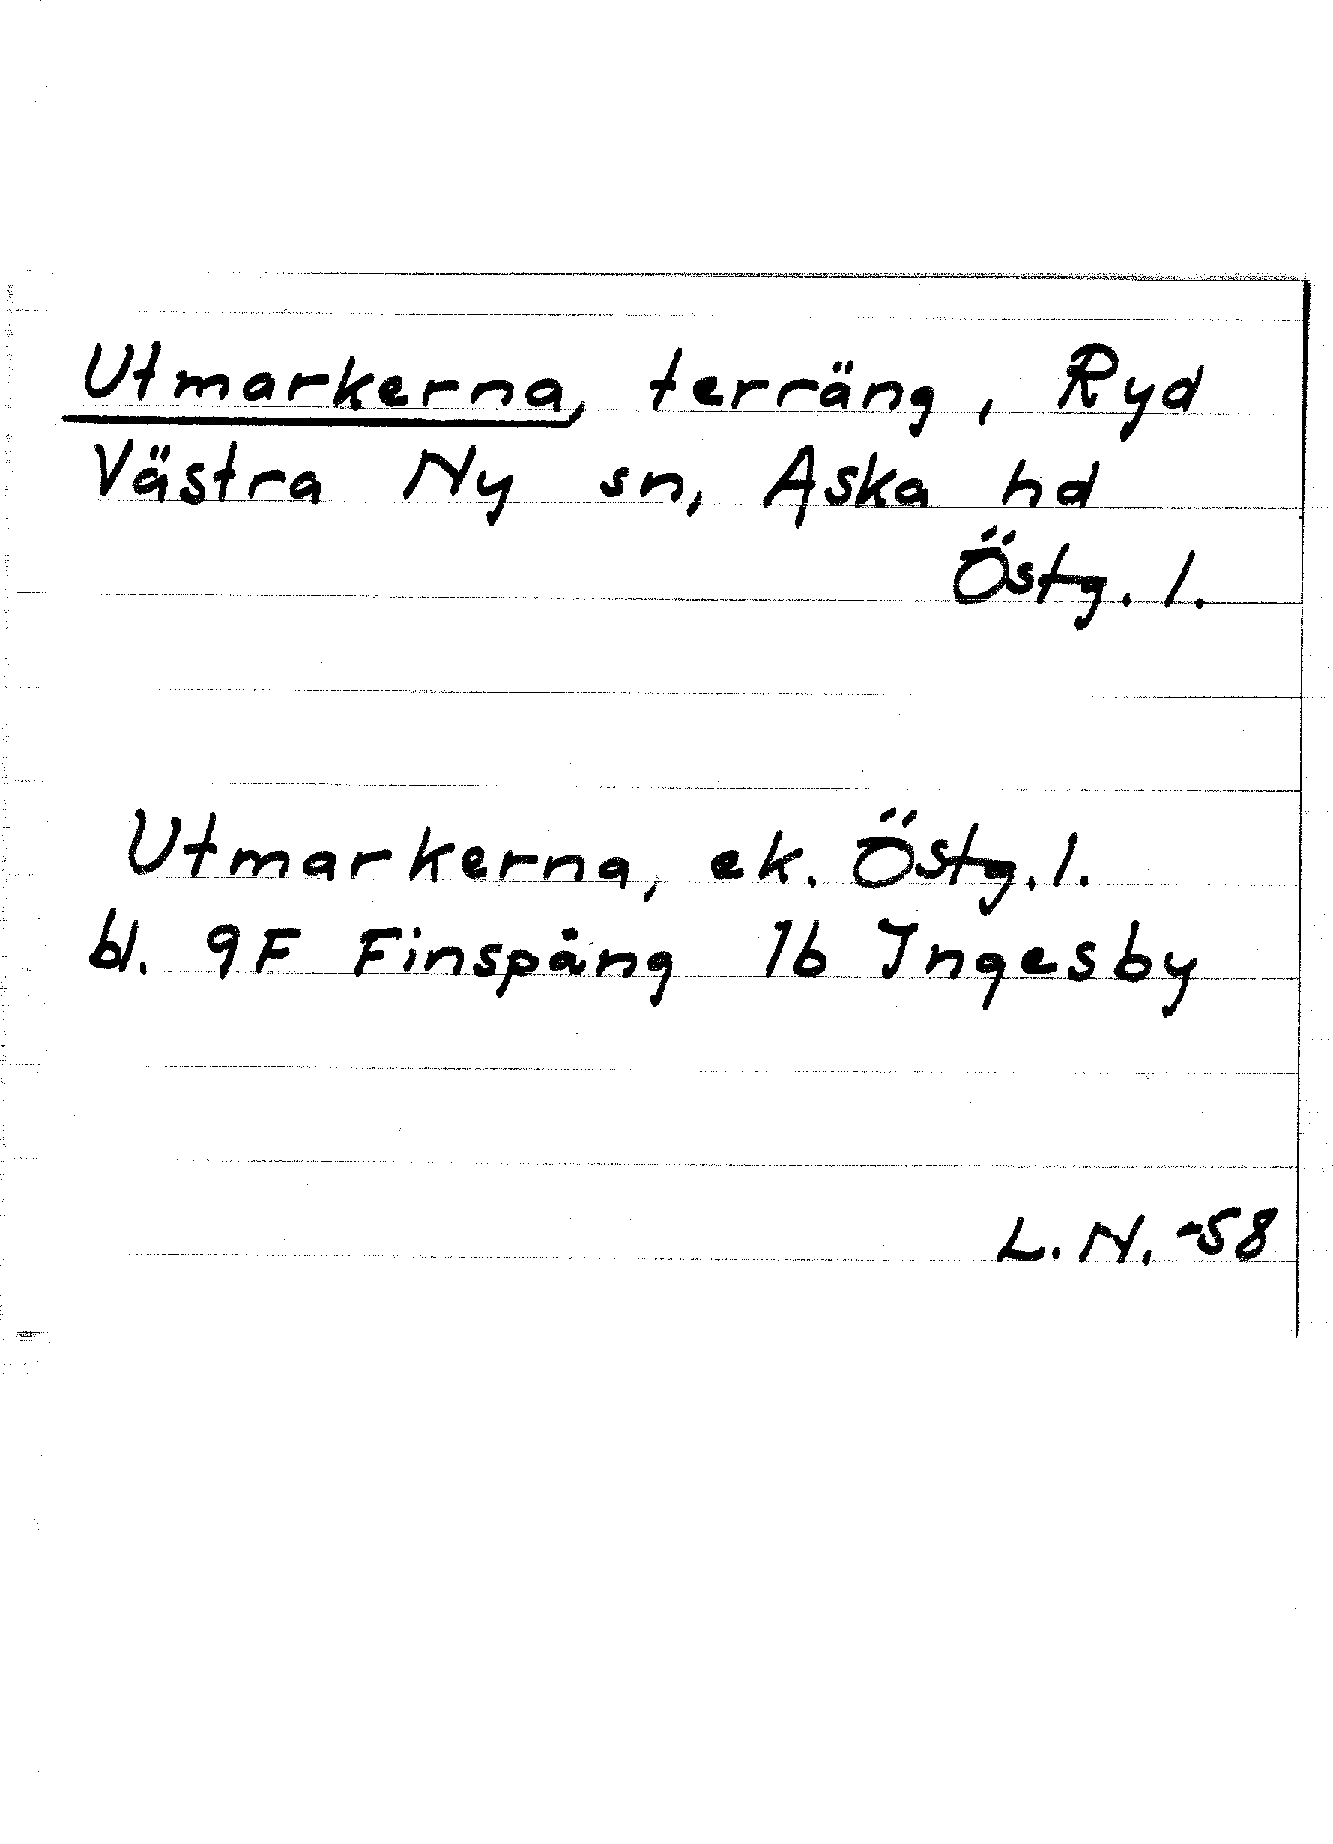 Utmarkerna, terräng, Ryd
Västra Ny sn, Aska hd
Östg. l.
Utmarkerna, ek. Östg. l.
bl. 9F Finspång 1b Ingesby
L. N. -58